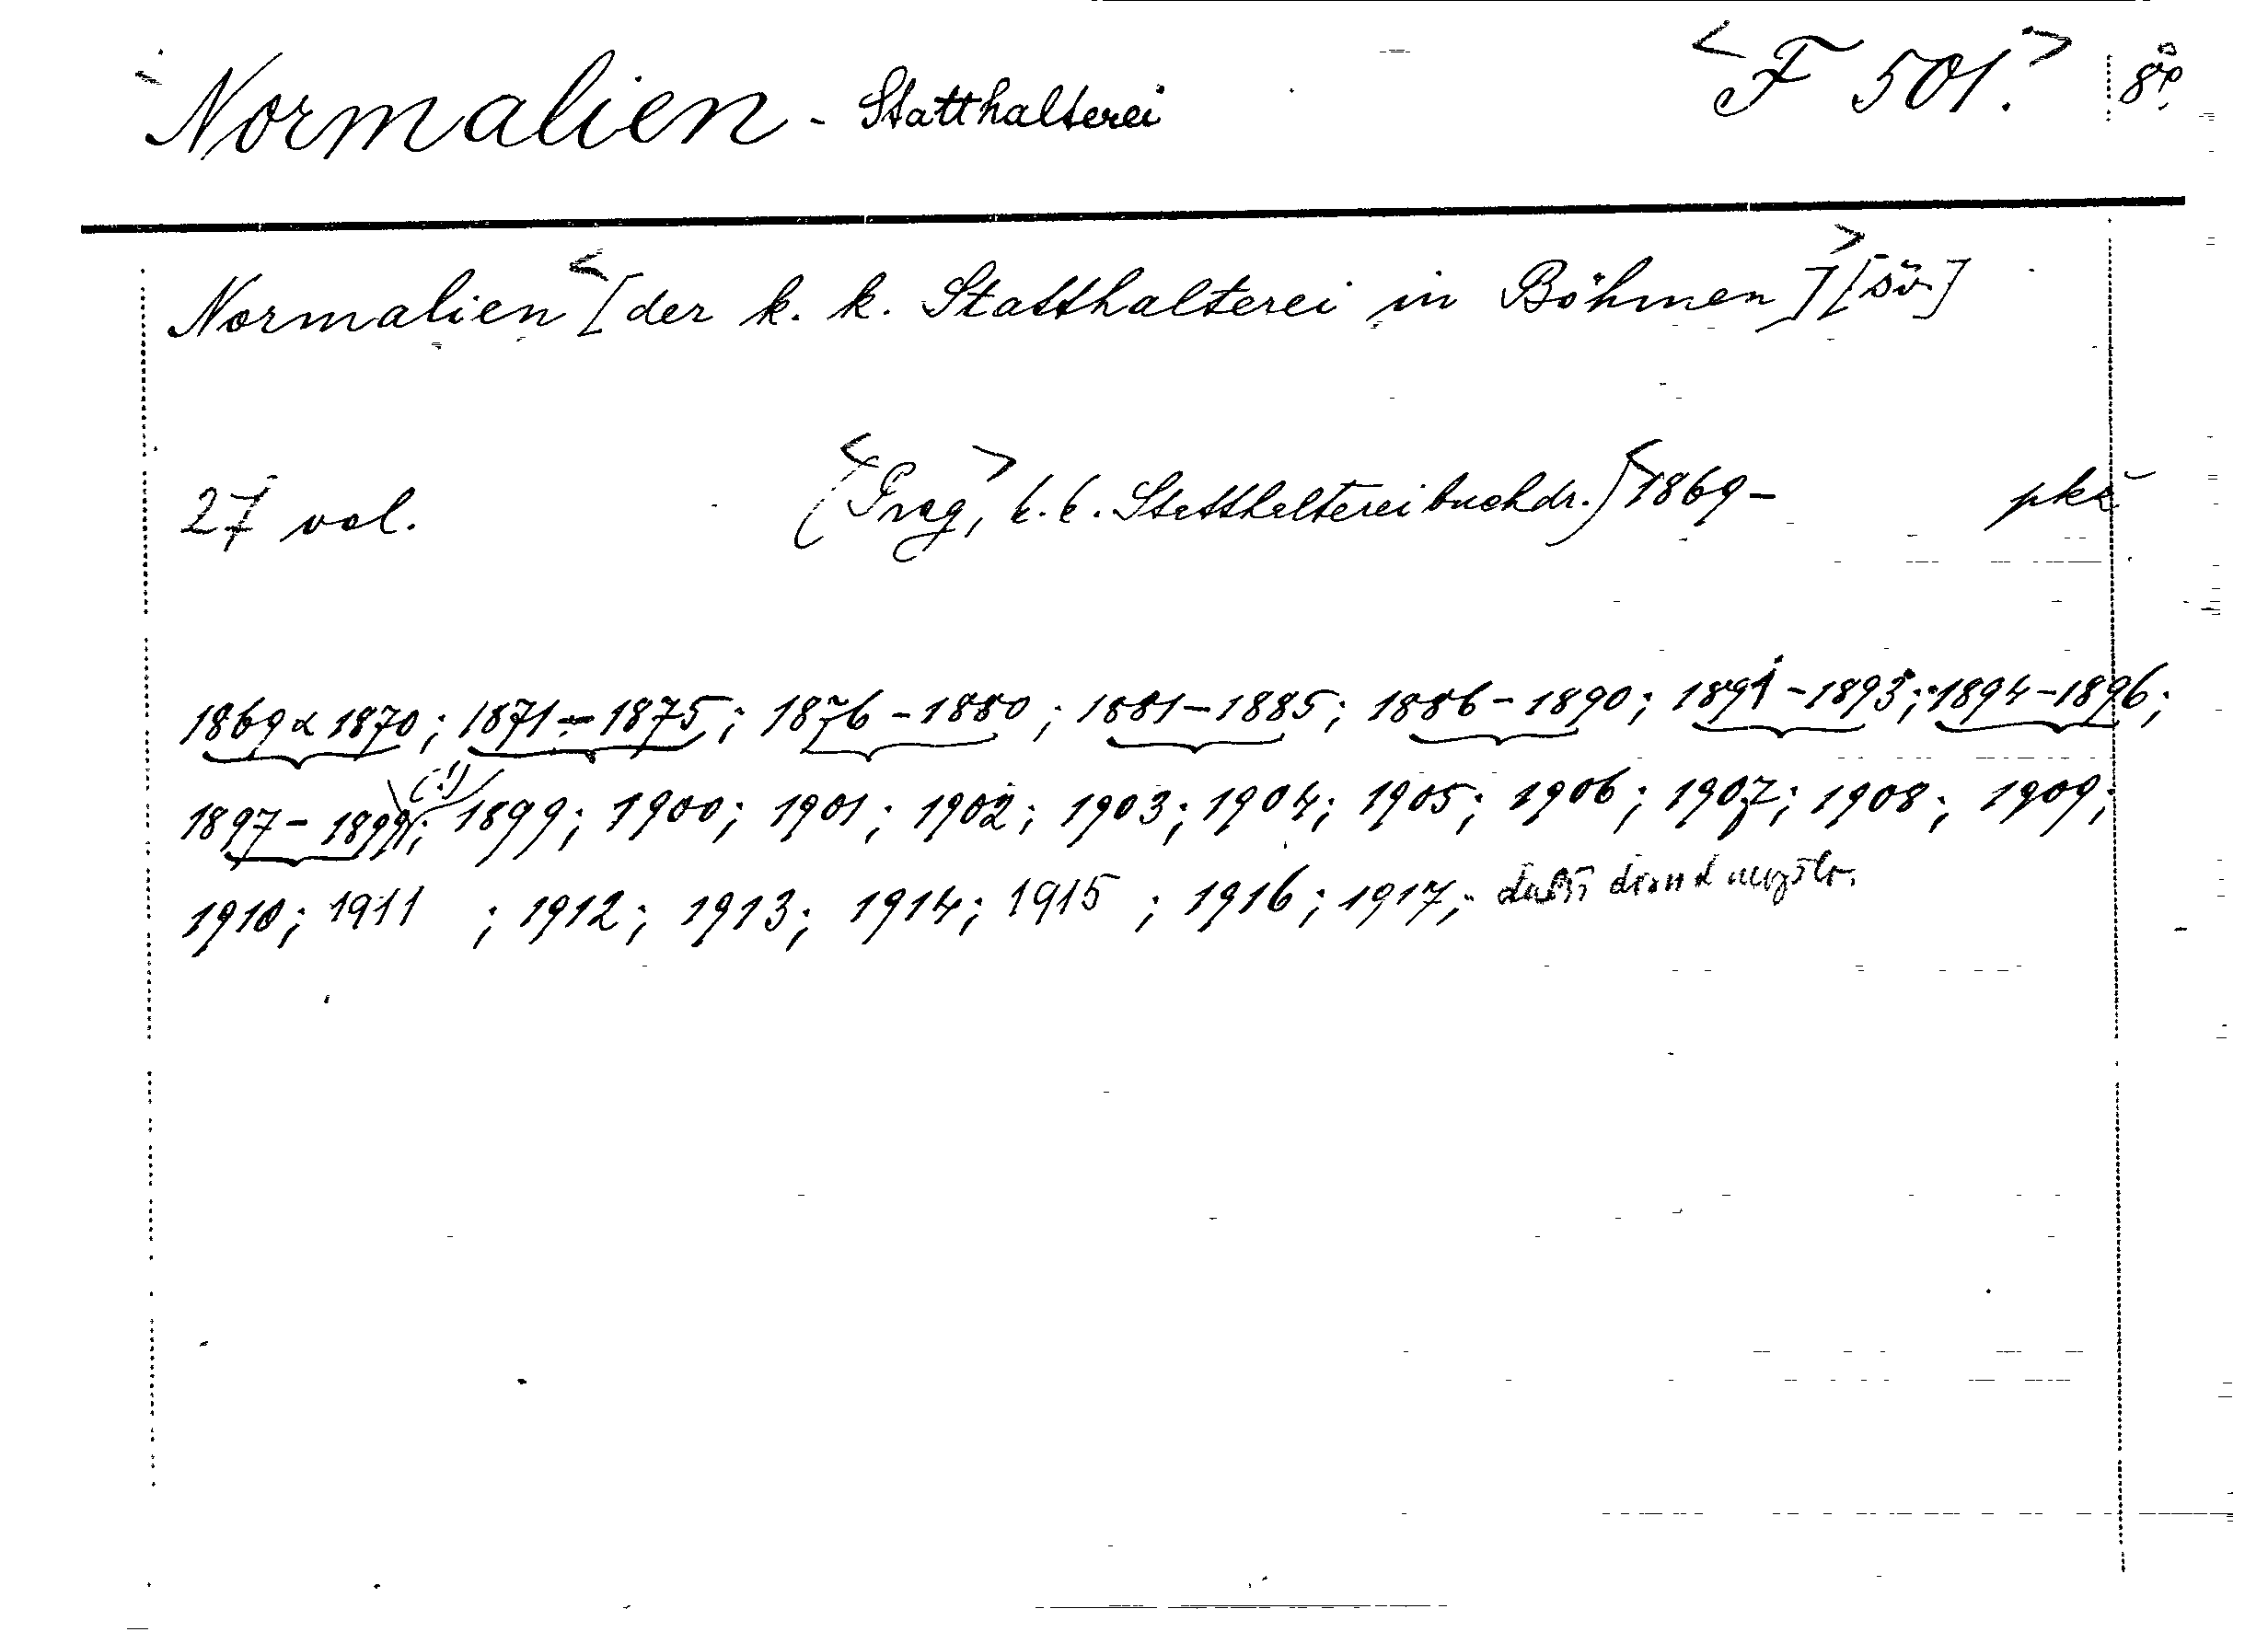 Normalien - Statthalterei <F 501.> 8°.
Normalien <[der k. k. Statthalterei in Böhmen]> [sv.]
27 vol. (<Prag,> k. k. Statthaltereibuchdr.) <1869- pkč
1869 & 1870; 1871-1875; 1876-1880; 1881-1885; 1886-1890; 1891-1893; 1894-1896;
1897-1899; (!) 1899; 1900; 1901; 1902; 1903; 1904; 1905; 1906; 1907; 1908; 1909;
1910; 1911 ; 1912; 1913; 1914; 1915 ; 1916; 1917;